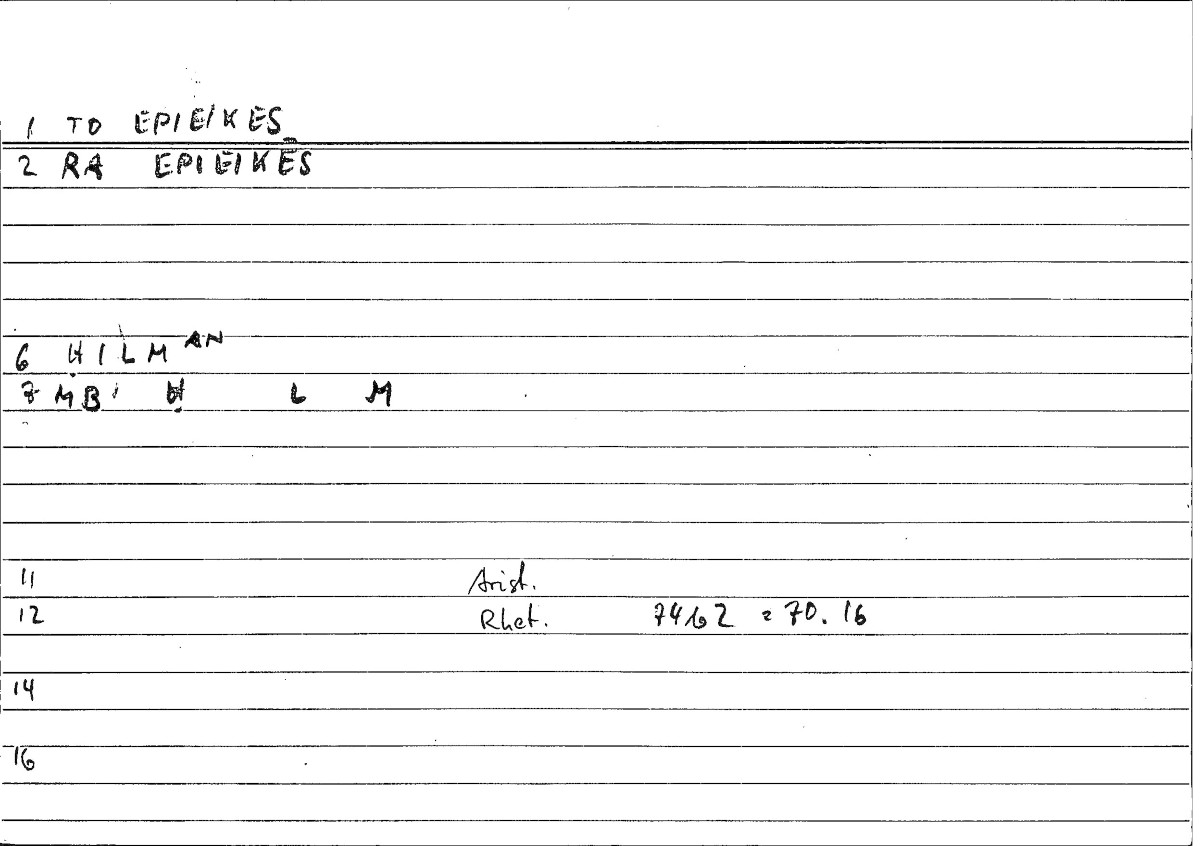 1 TO EPIEIKES
2 RA EPIEIKĒS
6 ḤILM AN
7 MBI Ḥ L M
11 Arist.
12 Rhet. 74b2 = 70.16
14
16